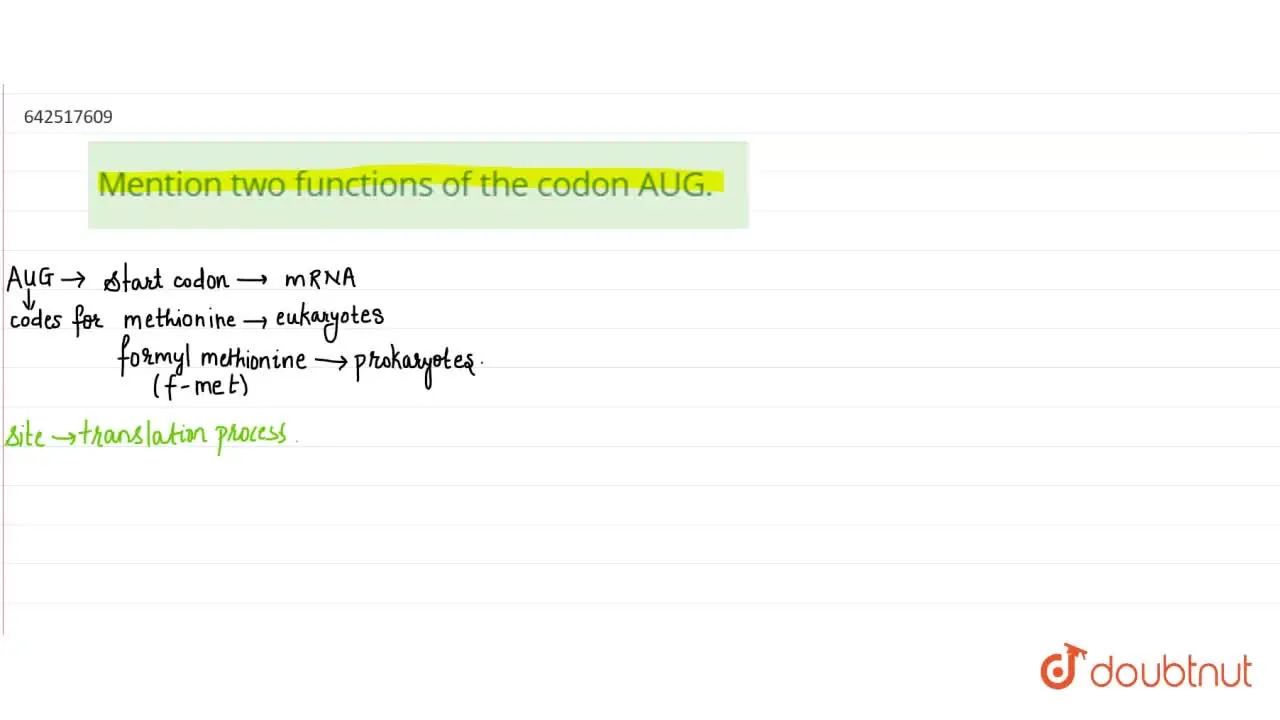 642517609
Mention two functions of the codon AUG.
AUG → start codon → mRNA
↓
codes for methionine → eukaryotes
formyl methionine → prokaryotes.
(f-met)
site → translation process.
doubtnut